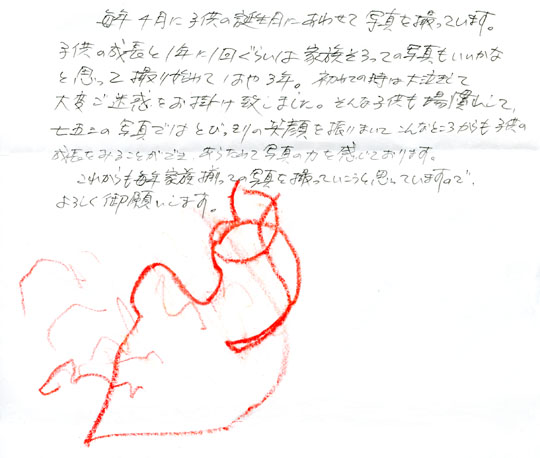 毎年4月に子供の誕生月にあわせて写真を撮っています。
子供の成長と1年に1回ぐらいは家族そろっての写真もいいかな
と思って撮り始めてはや3年。初めての時は大泣きして
大変ご迷惑をお掛け致しました。そんな子供も場慣れして、
七五三の写真ではとびっきりの笑顔を振りまいてこんなところからも子供の
成長をみることができ、あらためて写真の力を感じております。
これからも毎年家族揃っての写真を撮っていこうと思っていますので、
よろしく御願いします。